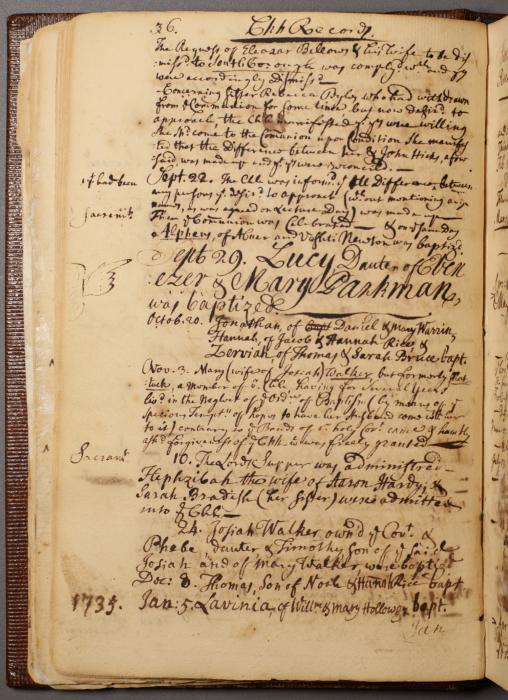 36. Chh Records.
The Request of Eleazar Bellows & his wife to be dis
miss'd to Southborough was comply'd with and yy
were accordingly dismiss'd
Concerning Sister Rebecca Byles who had withdrawn
from ye Communion for some time but now desir'd to
approach, the Chh manifested yt yy were willing
She sh'd come to the Comunion upon Condition She manifes
ted that the Difference between her & John Hicks, afore
said was made up and yt yy were reconcil'd.
Sept. 22. The Chh was inform'd yt Difference between
any persons yt desir'd to approach (without mentioning any
names, as was agreed on Lecture Day) was made up
Then ye Comunion was Celebrated & on ye same day
Alpheus of Abner and Vashti Newton was baptiz'd
yt had been
Sacramt
Sept 29. Lucy Dauter of Eben
ezer & Mary Parkman,
was baptized
Octob. 20. Jonathan, of Daniel & Mary Warrin,
Hannah, of Jacob & Hannah Rice &
Zerviah of Thomas & Sarah Bruce bapt.
Nov. 3. Mary (wife of Josiah) Walker, but formerly
a member of ye Chh having for Several Years
liv'd in the Neglect of ye Ord. of Baptism (by means of
specious of hopes to have her Husband come with her
to it) contrary to ye Bonds of ye holy Covt. came & humbly
ask'd forgiveness of ye Chh. & was freely granted
Sacramt
10. The Lord's Supper was administred
Hephzibah the wife of Aaron Hardy, &
Sarah Bradish (her Sister) were admitted
into ye Chh
24. Josiah Walker own'd ye Covt. &
Phebe, dauter & Timothy Son of ye said
Josiah and of Mary Walker were baptiz'd
Dec: 8. Thomas, Son of Noah & Hannah Rice bapt
1735. Jan: 5. Lavinia, of Willm & Mary Holloway bapt.
Jan